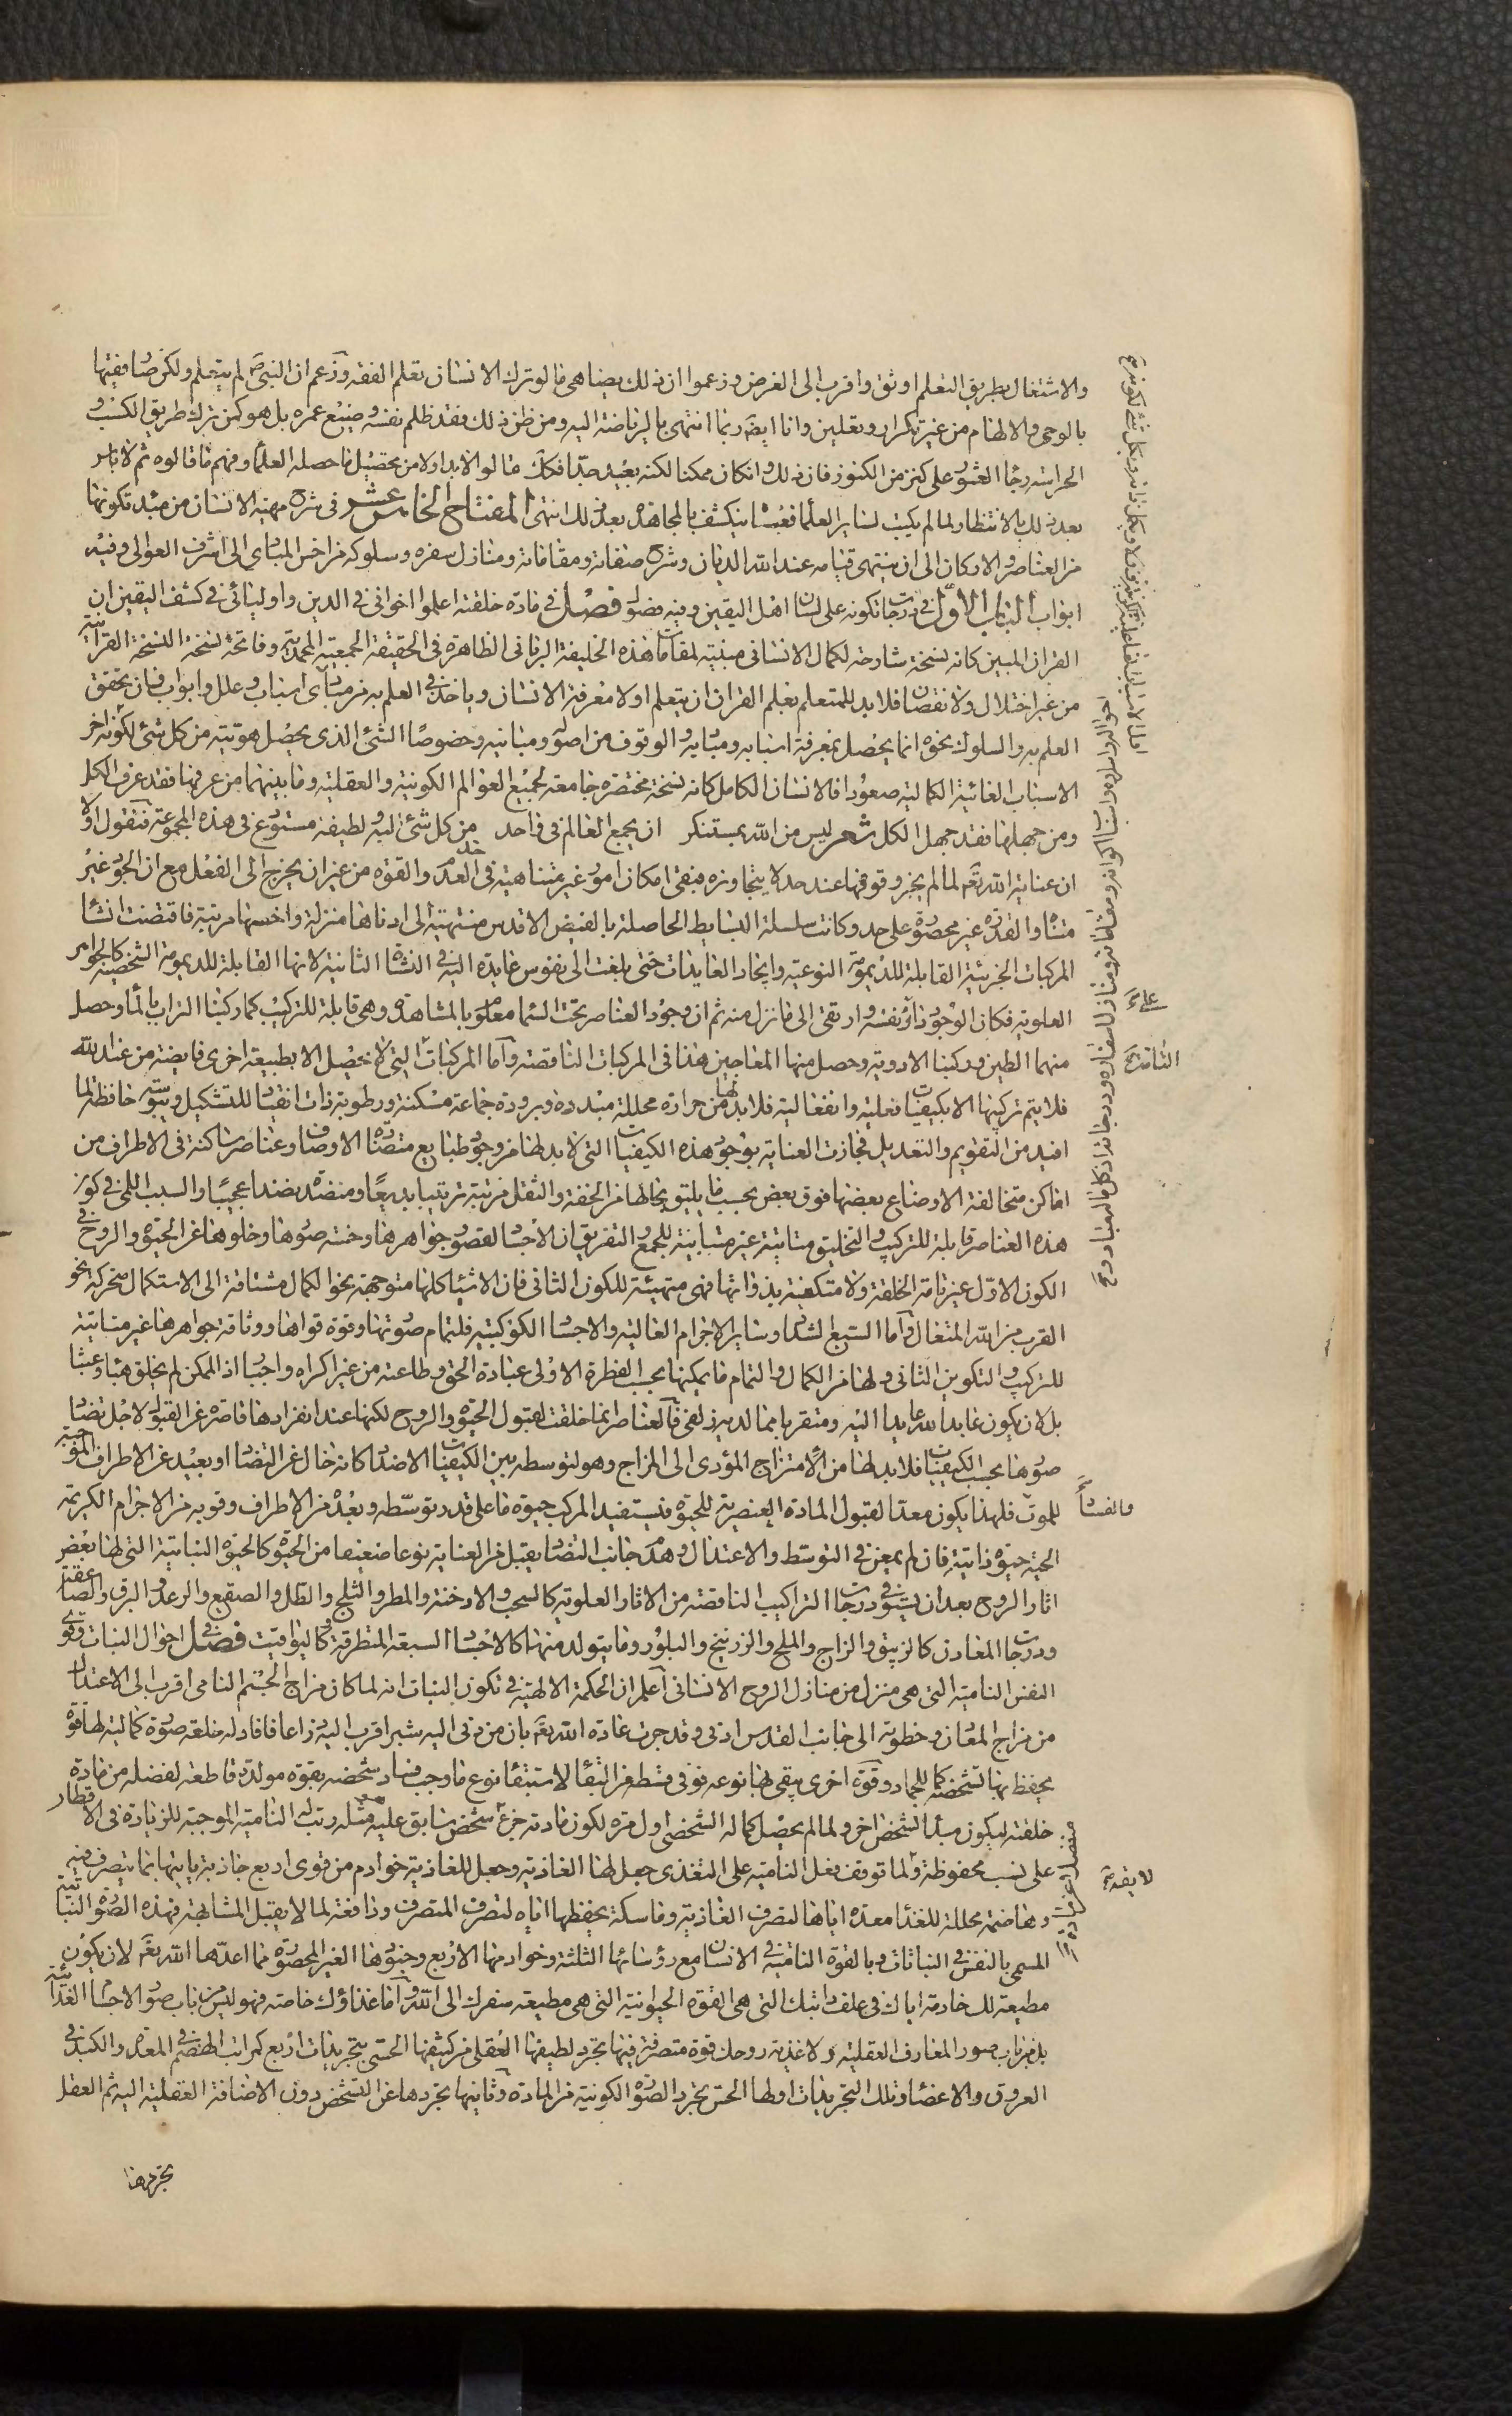 والاشتغال بطريق التعلم اوثق واقرب الى الغرض وزعموا ان ذلك يضاهى ما لو ترك الانسان تعلم الفقه وزعم ان النبى ص لم يتعلم ولكن صار فقيها
بالوحى والالهام من غير تكرار وتعليق وانا ايضا ربما انتهى بالرياضة اليه ومن ظن ذلك فقد ظلم نفسه وضيع عمره بل هو كمن ترك طريق الكسب و
الحراثة رجاء العثور على كنز من الكنوز فان ذلك وان كان ممكنا لكنه بعيد جدا فكذلك قالوا لابد اولا من تحصيل ما حصله العلماء وفهم ما قالوه ثم لا باس
بعد ذلك بالانتظار لما لم يكتب لساير العلماء فعساه ينكشف بالمجاهدة بعد ذلك انتهى المفتاح الخامس عشر فى شرح مهية الانسان من مبدء تكونها
من العناصر والاركان الى ان ينتهى قيامه عند الله الديان وشرح صفاته ومقاماته ومنازل سفره وسلوكه من اخس المبادى الى اشرف العوالى وفيه
ابواب الباب الاول فى درجات تكونه على لسان اهل اليقين وفيه فصول فصل فى مادة خلقته اعلموا اخوانى فى الدين واوليائى فى كشف اليقين ان
القران المبين كانه نسخة شارحة لكمال الانسانى مبينة لمقامات هذه الخليفة الربانى الظاهرة فى الحقيقة الجمعية المحمدية وفاتحة نسخة النسخة القرانية
من غير اختلال ولا نقصان فلا بد للمتعلم بعلم القران ان يتعلم اولا معرفة الانسان وياخذ فى العلم به من مبادى اسباب وعلل وابواب فان تحقق
العلم به والسلوك نحوه انما يحصل بمعرفة اسبابه ومباديه والوقوف من اصوله ومبانيه وخصوصا الشئ الذى يحصل هويته من كل شئ لكونه اخر
الاسباب الغائية الكمالية صعودا فالانسان الكامل كانه نسخة مختصرة جامعة لجميع العوالم الكونية والعقلية وما بينهما من عرفها فقد عرف الكل
ومن جهلها فقد جهل الكل شعر ليس من الله بمستنكر ان يجمع العالم فى واحد من كل شئ لبه ولطيفه مستودع فى هذه المجموعة فنقول اولا
ان عناية الله تعالى لما لم يجز وقوفها عند حد لا يتجاوزه فبقى امكان امور غير متناهية فى حد العدم والقوة من غير ان يخرج الى الفعل مع ان الجود غير
متناه والقدرة غير محصورة على حد وكانت سلسلة البسايط الحاصلة بالفيض الاقدس منتهية الى ادناها منزلة واخسها مرتبة فاقتضت انشاء
المركبات الجزئية القابلة للديمومة النوعية وايجاد العايدات حتى بلغت الى نفوس عايدة اليه فى النشاة الثانية لانها القابلة للديمومة الشخصية كالجواهر
العلوية فكان الوجود نزل بنفسه وارتقى الى ما نزل منه ثم ان وجود العناصر تحت السماء معلوم بالمشاهدة وهى قابلة للتركيب كما ركبنا التراب بالماء وحصل
منهما الطين وركبنا الادوية وحصل منها المعاجين هذا فى المركبات الناقصة واما المركبات التى لا تحصل الا بطبيعة اخرى فايضة من عند الله
فلا يتم تركيبها الا بكيفيات فعلية وانفعالية فلا بد لها من حرارة محللة مبددة وبرودة جماعة مسكنة ورطوبة ذات انقياد للتشكيل ويبوسة حافظة لما
افيد من التقويم والتعديل فجازت العناية بوجود هذه الكيفيات التى لا بد لها من وجود طبايع متضادة الاوصاف وعناصر ساكنة فى الاطراف من
اماكن متخالفة الاوضاع بعضها فوق بعض بحسب ما يليق بحالها من الخفة والثقل مرتبة ترتيبا بديعا ومنضدة نضدا عجيبا والسبب اللمى فى كون
هذه العناصر قابلة للتركيب والتخليق متاتية غير متابية للجمع والتفريق ان الاجسام لقصور جواهرها وخسة صورها وخلوها عن الحيوة والروح فى
الكون الاول غير تامة الخلقة ولا مكتفية بذواتها فهى متهيئة للكون الثانى فان الاشياء كلها متوجهة نحو الكمال مشتاقة الى الاستكمال متحركة نحو
القرب من الله المتعال واما السبع الشداد وساير الاجرام العالية والاجسام الكوكبية فلتمام صورتها وقوة قواها ووثاقة جواهرها غير متاتية
للتركيب والتكوين الثانى ولها من الكمال والتمام ما يمكنها بحسب الفطرة الاولى عبادة الحق وطاعته من غير اكراه واجبار اذ الممكن لم يخلق هباء وعبثا
بل لان يكون عابدا لله عايدا اليه ومتقربا بما لديه زلفى فالعناصر انما خلقت لقبول الحيوة والروح لكنها عند انفرادها قاصرة عن القبول لاجل تضاد
صورها بحسب الكيفيات فلا بد لها من الامتزاج المؤدى الى المزاج وهو لتوسطه بين الكيفيات الاضداد كانه خال عن التضاد او بعيد عن الاطراف الموجبة
للموت فلهذا يكون معدا لقبول المادة العنصرية للحيوة فيستفيد المركب حيوة ما على قدر توسطه وبعده من الاطراف وقربه من الاجرام الكريمة
الحية حيوة ذاتية فان لم يمعن فى التوسط والاعتدال وهدم جانب التضاد يقبل من العناية نوعا ضعيفا من الحيوة كالحيوة النباتية التى لها بعض
اثار الروح بعد ان يستوفى درجات التراكيب الناقصة من الاثار العلوية كالسحب والادخنة والمطر والثلج والطل والصقيع والرعد والبرق والصاعقة
ودرجات المعادن كالزيبق والزاج والملح والزرنيخ والبلور وما يتولد منها كالاجساد السبعة المتطرقة وكاليواقيت فصل فى احوال النبات وقوى
النفس النامية التى هى منزل من منازل الروح الانسانى اعلم ان الحكمة الالهية فى تكون النبات انه لما كان مزاج الجسم النامى اقرب الى الاعتدال
من مزاج المعادن وخطوته الى جانب القدس ادنى وقد جرت عادة الله تعالى بان من دنى اليه شبرا قرب اليه ذراعا فافاد له خلعة صورة كمالية لها قوة
يحفظ بها تشخصه كما للجماد وقوة اخرى يبقى لها نوعه فوفى قسطه من البقاء لاستبقاء نوع ما وجب فساد شخصه بقوة مولدة قاطعة لفضلة من مادة
خلقته ليكون مبدا لشخص اخر ولما لم يحصل كماله الشخصى اول مرة لكون مادته جزء شخص سابق عليه مثله رتب له النامية الموجبة للزيادة فى الاقطار
على نسب محفوظة ولما توقف فعل النامية على التغذى جعل لها الغاذية وجعل للغاذية خوادم من قوى اربع جاذبة ياتيها بما يتصرف فيه
وهاضمة محللة للغذاء معدة اياها لتصرف الغاذية وماسكة يحفظها اياه لتصرف المتصرف ودافعة لما لا يقبل المشابهة فهذه الصور النباتية
المسمى بالنفس فى النباتات وبالقوة النامية فى الانسان مع رؤسائها الثلثة وخوادمها الاربع وجنودها الغير المحصورة مما اعدها الله تعالى لان يكون
مطيعة لك خادمة اياك فى علف دابتك التى هى القوة الحيوانية التى هى مطية سفرك الى الله واما غذاؤك خاصة فهو ليس من باب صور الاجسام الغذائية
بل من باب صور المعارف العقلية ولاغذية روحك قوة متصرفة فيها تجرد لطيفها العقلى من كثيفها الحسى بتجريدات اربع كمراتب الهضم فى المعدة والكبد فى
العروق والاعضاء وتلك التجريدات اولها الحس تجرد الصورة الكونية من المادة وثانيها تجردها عن التشخص دون الاضافة العقلية اليه ثم العقل
تجردها